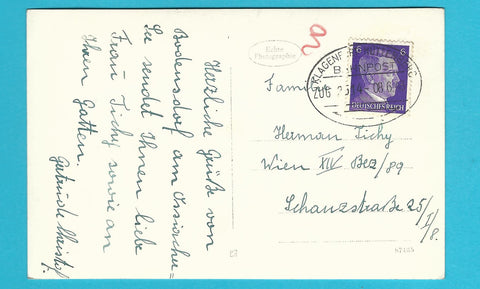 Herzliche Grüße von
Bodensdorf am Ossiacher=
See sendet Ihnen liebe
Frau Tichy sowie an
Ihren Gatten.
Gertrude
Echte
Photographie
BAHNPOST
ZUG
6 6
DEUTSCHES REICH
Familie
Herman Tichy
Wien XIV Bez/89
Schanzstraße 25/
I/8.